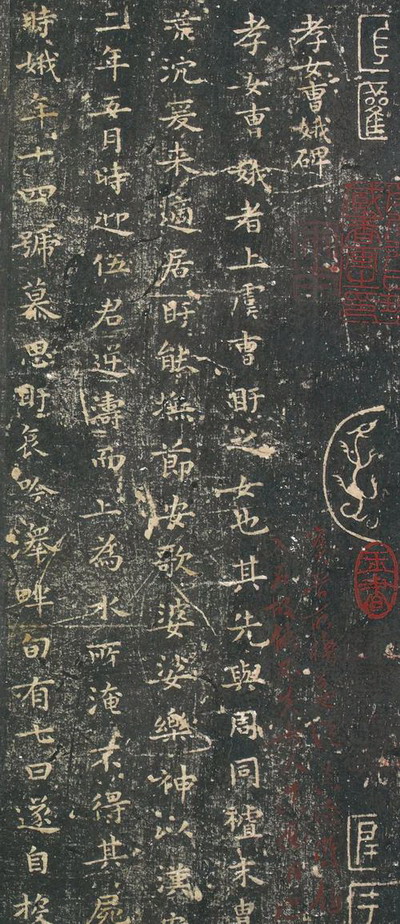 孝女曹娥碑
孝女曹娥者上虞曹盱之女也其先與周同祖末
荒沉爰来適居盱能撫節安歌婆娑樂神以漢
二年五月時迎伍君逆濤而上為水所淹不得其屍
時娥年十四號慕思盱哀吟澤畔旬有七日遂自投